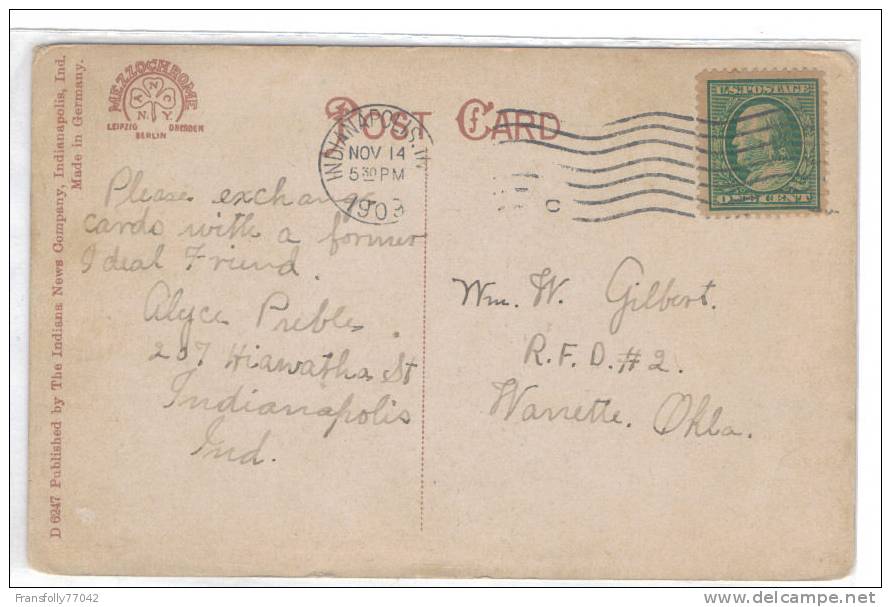 D 6247 Published by The Indiana News Company, Indianapolis, Ind.
Made in Germany.
MEZZOCHROME
A N C
N. Y.
LEIPZIG DRESDEN
BERLIN
POST CARD
INDIANAPOLIS, IN
NOV 14
5 30 PM
1909
C
U.S. POSTAGE
ONE CENT
Please exchange
cards with a former
Ideal Friend.
Alyce Preble.
207 Hiawatha St
Indianapolis
Ind.
Wm. W. Gilbert.
R.F.D. #2.
Wanette. Okla.
Fransfolly77042
www.delcampe.net